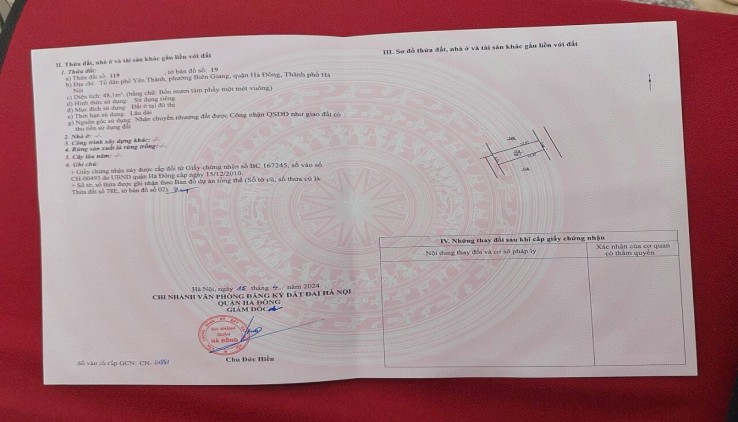 II. Thửa đất, nhà ở và tài sản khác gắn liền với đất
1. Thửa đất:
a) Thửa đất số: 119 , tờ bản đồ số: 19
b) Địa chỉ: Tổ dân phố Yên Thành, phường Biên Giang, quận Hà Đông, Thành phố Hà
Nội
c) Diện tích: 48,1m², (bằng chữ: Bốn mươi tám phẩy một mét vuông)
d) Hình thức sử dụng: Sử dụng riêng
đ) Mục đích sử dụng: Đất ở tại đô thị
e) Thời hạn sử dụng: Lâu dài
g) Nguồn gốc sử dụng: Nhận chuyển nhượng đất được Công nhận QSDĐ như giao đất có
thu tiền sử dụng đất
2. Nhà ở: -/-
3. Công trình xây dựng khác: -/-
4. Rừng sản xuất là rừng trồng: -/-
5. Cây lâu năm: -/-
6. Ghi chú:
+ Giấy chứng nhận này được cấp đổi từ Giấy chứng nhận số BC 167245, số vào sổ
CH-00493 do UBND quận Hà Đông cấp ngày 15/12/2010.
+ Số tờ, số thửa được ghi nhận theo Bản đồ dự án tổng thể (Số tờ cũ, số thửa cũ là
Thửa đất số 78E, tờ bản đồ số 02).
Hà Nội, ngày 15 tháng năm 2024
CHI NHÁNH VĂN PHÒNG ĐĂNG KÝ ĐẤT ĐAI HÀ NỘI
QUẬN HÀ ĐÔNG
GIÁM ĐỐC
CHI NHÁNH
QUẬN
HÀ ĐÔNG
Chu Đức Hiển
Số vào sổ cấp GCN: CN-
III. Sơ đồ thửa đất, nhà ở và tài sản khác gắn liền với đất
IV. Những thay đổi sau khi cấp giấy chứng nhận
Nội dung thay đổi và cơ sở pháp lý
Xác nhận của cơ quan
có thẩm quyền